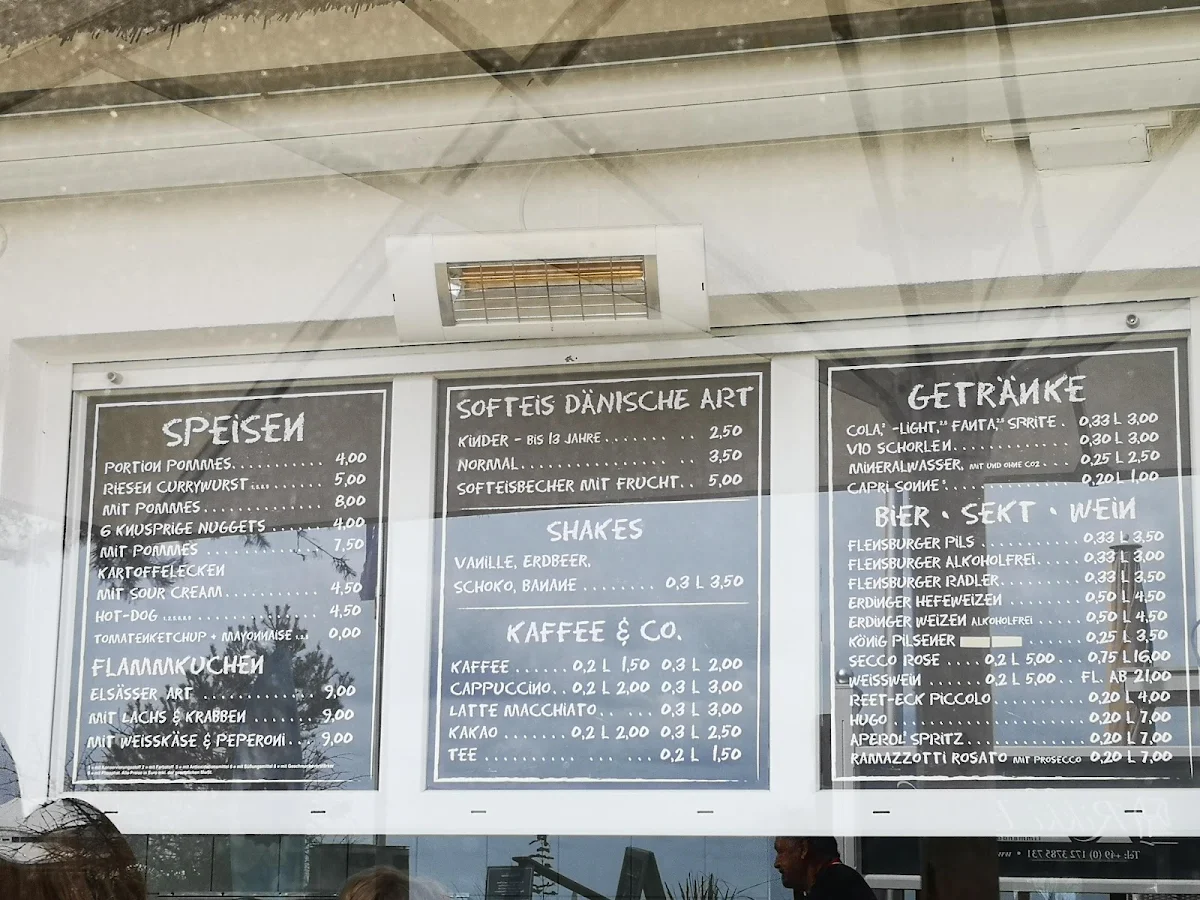 SPEISEN
PORTION POMMES............ 4,00
RIESEN CURRYWURST ......... 5,00
MIT POMMES ................ 8,00
6 KNUSPRIGE NUGGETS ....... 4,00
MIT POMMES ................ 7,50
KARTOFFELECKEN
MIT SOUR CREAM............. 4,50
HOT-DOG ................... 4,50
TOMATENKETCHUP + MAYONNAISE ... 0,00
FLAMMKUCHEN
ELSÄSSER ART .............. 9,00
MIT LACHS & KRABBEN ....... 9,00
MIT WEISSKÄSE & PEPERONI... 9,00
SOFTEIS DÄNISCHE ART
KINDER - BIS 13 JAHRE....... .. 2,50
NORMAL..................... 3,50
SOFTEISBECHER MIT FRUCHT.. 5,00
SHAKES
VANILLE, ERDBEER,
SCHOKO, BANANE ......... 0,3 L 3,50
KAFFEE & CO.
KAFFEE ...... 0,2 L 1,50 0,3 L 2,00
CAPPUCCINO.. 0,2 L 2,00 0,3 L 3,00
LATTE MACCHIATO....... 0,3 L 3,00
KAKAO ....... 0,2 L 2,00 0,3 L 2,50
TEE ................... 0,2 L 1,50
GETRÄNKE
COLA, -LIGHT, FANTA, SPRITE . 0,33 L 3,00
VIO SCHORLEN............... 0,30 L 3,00
MINERALWASSER, MIT UND OHNE CO2 ... 0,25 L 2,50
CAPRI SONNE ............... 0,20 L 1,00
BIER • SEKT • WEIN
FLENSBURGER PILS .......... 0,33 L 3,50
FLENSBURGER ALKOHOLFREI.... 0,33 L 3,00
FLENSBURGER RADLER......... 0,33 L 3,50
ERDINGER HEFEWEIZEN ....... 0,50 L 4,50
ERDINGER WEIZEN ALKOHOLFREI ..... 0,50 L 4,50
KÖNIG PILSENER ...... 0,25 L 3,50
SECCO ROSE .... 0,2 L 5,00... 0,75 L 16,00
WEISSWEIN ...... 0,2 L 5,00... FL. AB 21,00
REET-ECK PICCOLO .......... 0,20 L 4,00
HUGO ...................... 0,20 L 7,00
APEROL SPRITZ ............. 0,20 L 7,00
RAMAZZOTTI ROSATO MIT PROSECCO 0,20 L 7,00